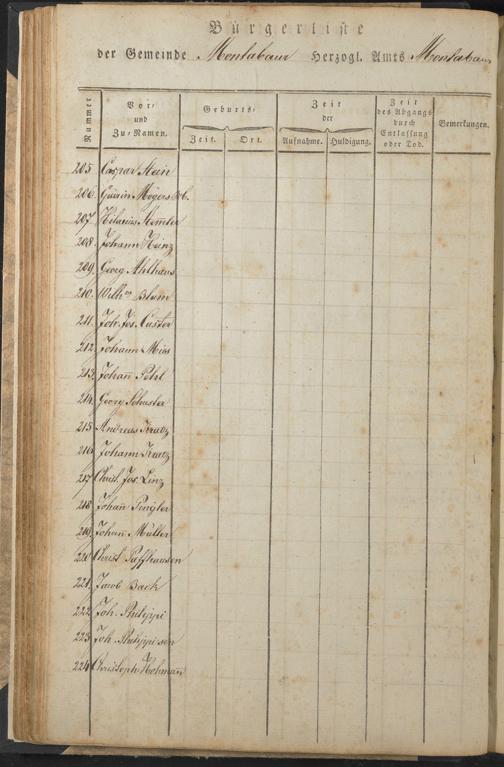 Bürgerliste
der Gemeinde Montabaur Herzogl. Amts Montabaur
Nummer
Vor- und Zu-Namen.
Geburts-
Zeit. Ort.
Zeit der
Aufnahme. Huldigung.
Zeit des Abgangs durch Entlassung oder Tod.
Bemerkungen.
205 Caspar Stein
206. Meyers
207 Hilarius Kemter
208. Johann Heinz
209. Georg Ahlhaus
210. Wilhm Blum
211. Joh. Jos. Custor
212. Johann Mies
213. Johañ Pehl
214. Georg Schuster
215 Andreas Kratz
216 Johann Kratz
217 Christ. Jos. Linz
218 Johañ Pingler
219. Johañ Müller
220 Christ Paffhausen
221. Jacob Back
222. Joh. Philippi
223. Joh. Philippi sen
224 Christoph Hohman